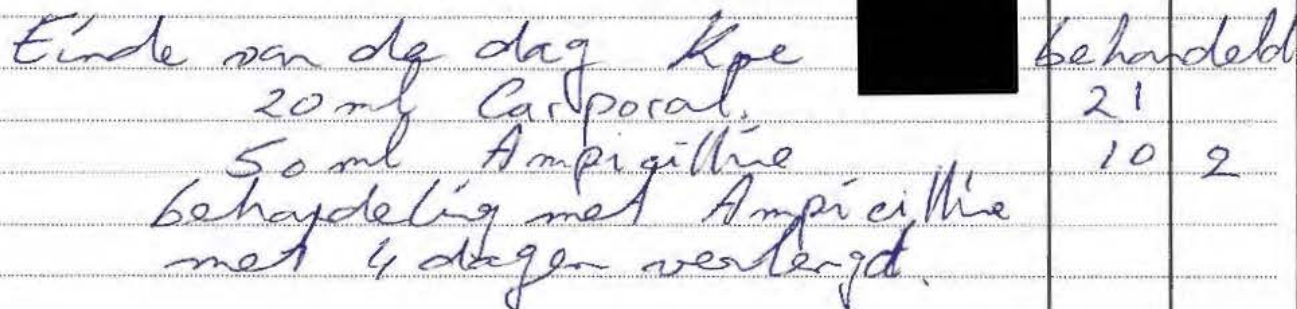 Einde van de dag Koe behandeld
20 ml Carporal. 21
50 ml Ampicilline 10 2
behandeling met Ampicilline
met 4 dagen verlengd.